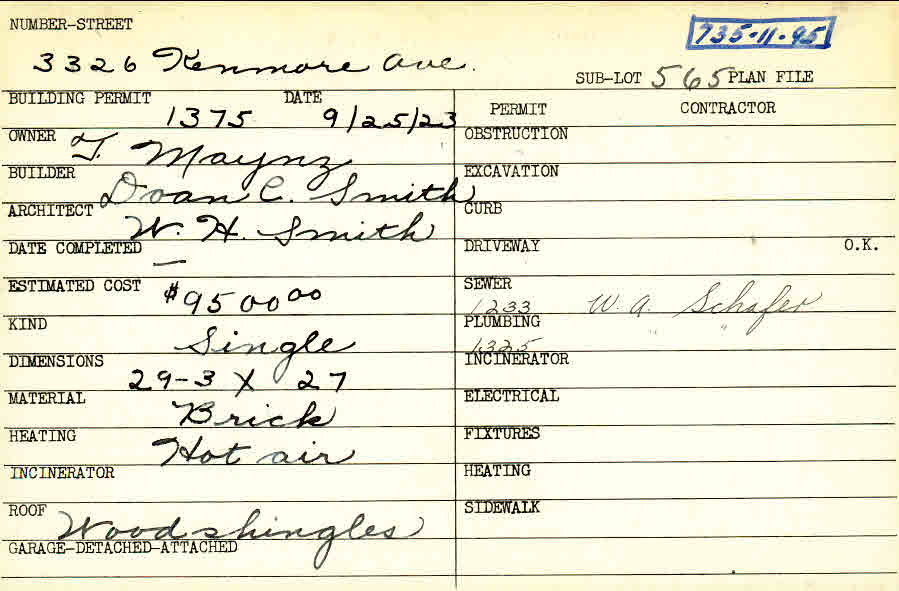 NUMBER-STREET
735-11-95
3326 Kenmore Ave.
SUB-LOT 565 PLAN FILE
BUILDING PERMIT DATE
1375 9/25/23
OWNER T. Maynz
BUILDER Doan C. Smith
ARCHITECT W. H. Smith
DATE COMPLETED —
ESTIMATED COST $9500 00
KIND Single
DIMENSIONS 29-3 X 27
MATERIAL Brick
HEATING Hot air
INCINERATOR
ROOF Wood shingles
GARAGE-DETACHED-ATTACHED
PERMIT CONTRACTOR
OBSTRUCTION
EXCAVATION
CURB
DRIVEWAY O.K.
SEWER
1233 W. A. Schafer
PLUMBING
1325 " "
INCINERATOR
ELECTRICAL
FIXTURES
HEATING
SIDEWALK